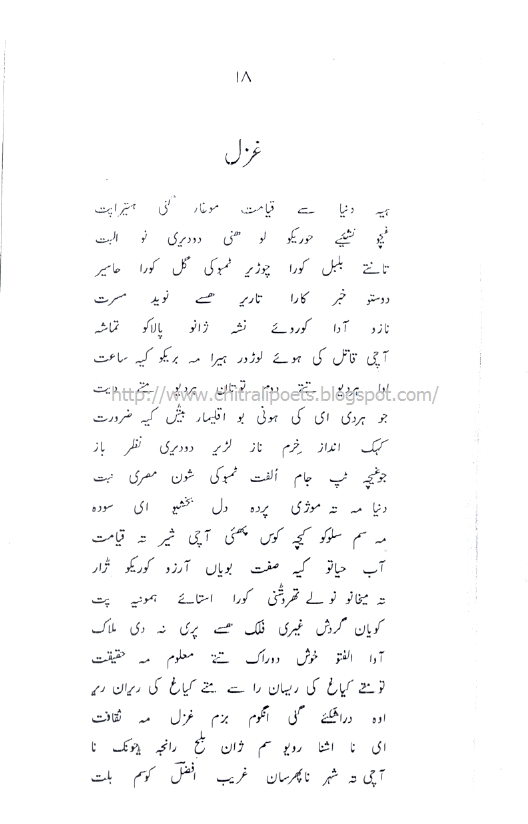 ۱۸
غزل
ہیہ دنیا سے قیامت مونار گنی ہتیراپت
غچو نشیئے حوریکو لو ھنی دودیری نو الہت
تانتے بلبل کورا چوڑیر ٹمبوکی گل کورا حاسیر
دوستو خبر کارا تاریر ھسے نوید مسرت
نازو آدا کوروئے نشہ ژانو پالاکو تماشہ
آچی قاتل کی ہوئے لوڑور ہیرا مہ بریکو کیہ ساعت
ہردیو تتے دوم نوتان ہردیو متے دیت
http://www.chitralipoets.blogspot.com/
جو ہردی ای کی ہونی بو اقلیمار بیش کیہ ضرورت
کہک انداز خرم ناز لڑیر دودیری نظر باز
جوغیچہ ٹپ جام اُلفت ٹمبوکی شون مصری نبت
دنیا مہ تہ موڑی پردہ دل بخشیو ای سودہ
مہ سم سلوکو کیچہ کوس پھتی آچی شیر تہ قیامت
آب حیاتو کیہ صفت بویان آرزو کوریکو تڑار
تہ میخانو نولے تھروشنی کورا استائے ہمونیہ پت
کویان گردش غیری فلک ھسے پری نہ دی ملاک
آدا الفتو خوش دوراک تتے معلوم مہ حقیقت
تو متے کیاغ کی ریسان را سے متے کیاغ کی ریران ریر
اوہ دراشکئے گنی انگوم بزم غزل مہ ثقافت
ای نا اشنا رویو سم ژان بلخ رانجہ نا
آچی تہ شہر ناپھرسان غریب افضل کوسم بلت